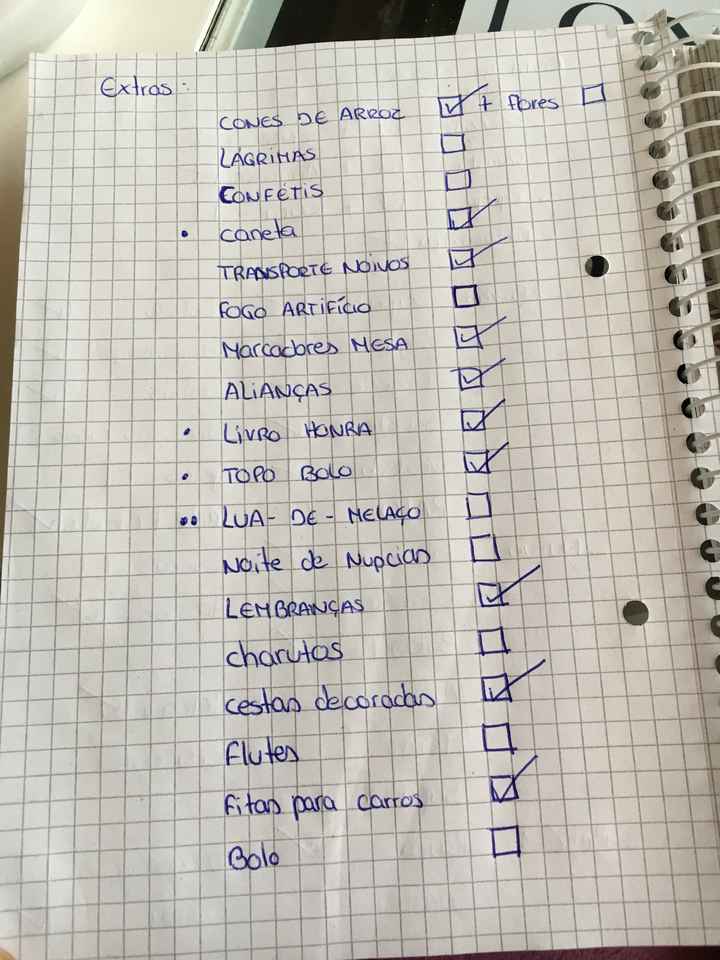 Extras:
CONES DE ARROZ ☑ + flores ☐
LÁGRIMAS ☐
CONFÉTIS ☐
• caneta ☑
TRANSPORTE NOIVOS ☑
FOGO ARTIFÍCIO ☐
Marcadores MESA ☑
ALIANÇAS ☑
• LIVRO HONRA ☑
• TOPO BOLO ☑
•• LUA-DE-MELAÇO ☐
Noite de Nupcias ☐
LEMBRANÇAS ☑
charutos ☐
cestas decoradas ☑
flutes ☐
fitas para carros ☑
Bolo ☐